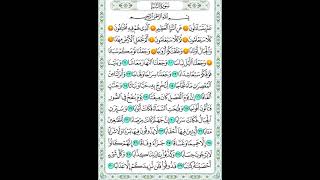 سُورَةُ النَّبَإِ
بِسْمِ اللَّهِ الرَّحْمَٰنِ الرَّحِيمِ
عَمَّ يَتَسَاءَلُونَ ۝ عَنِ النَّبَإِ الْعَظِيمِ ۝ الَّذِي هُمْ فِيهِ مُخْتَلِفُونَ ۝
كَلَّا سَيَعْلَمُونَ ۝ ثُمَّ كَلَّا سَيَعْلَمُونَ ۝ أَلَمْ نَجْعَلِ الْأَرْضَ مِهَادًا ۝
وَالْجِبَالَ أَوْتَادًا ۝ وَخَلَقْنَاكُمْ أَزْوَاجًا ۝ وَجَعَلْنَا نَوْمَكُمْ سُبَاتًا ۝
وَجَعَلْنَا اللَّيْلَ لِبَاسًا ۝ وَجَعَلْنَا النَّهَارَ مَعَاشًا ۝ وَبَنَيْنَا
فَوْقَكُمْ سَبْعًا شِدَادًا ۝ وَجَعَلْنَا سِرَاجًا وَهَّاجًا ۝ وَأَنْزَلْنَا مِنَ
الْمُعْصِرَاتِ مَاءً ثَجَّاجًا ۝ لِنُخْرِجَ بِهِ حَبًّا وَنَبَاتًا ۝ وَجَنَّاتٍ
أَلْفَافًا ۝ إِنَّ يَوْمَ الْفَصْلِ كَانَ مِيقَاتًا ۝ يَوْمَ يُنْفَخُ فِي الصُّورِ
فَتَأْتُونَ أَفْوَاجًا ۝ وَفُتِحَتِ السَّمَاءُ فَكَانَتْ أَبْوَابًا ۝ وَسُيِّرَتِ
الْجِبَالُ فَكَانَتْ سَرَابًا ۝ إِنَّ جَهَنَّمَ كَانَتْ مِرْصَادًا ۝ لِلطَّاغِينَ
مَآبًا ۝ لَابِثِينَ فِيهَا أَحْقَابًا ۝ لَا يَذُوقُونَ فِيهَا بَرْدًا وَلَا شَرَابًا ۝
إِلَّا حَمِيمًا وَغَسَّاقًا ۝ جَزَاءً وِفَاقًا ۝ إِنَّهُمْ كَانُوا
لَا يَرْجُونَ حِسَابًا ۝ وَكَذَّبُوا بِآيَاتِنَا كِذَّابًا ۝ وَكُلَّ شَيْءٍ
أَحْصَيْنَاهُ كِتَابًا ۝ فَذُوقُوا فَلَنْ نَزِيدَكُمْ إِلَّا عَذَابًا ۝